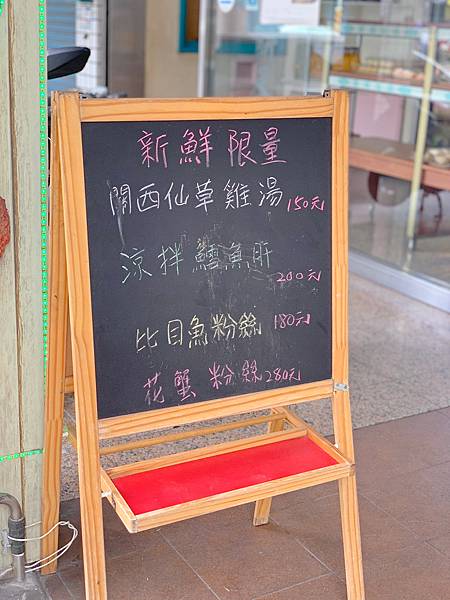 新鮮限量
關西仙草雞湯 150元
涼拌鱈魚肝 200元
比目魚粉絲 180元
花蟹粉絲 280元